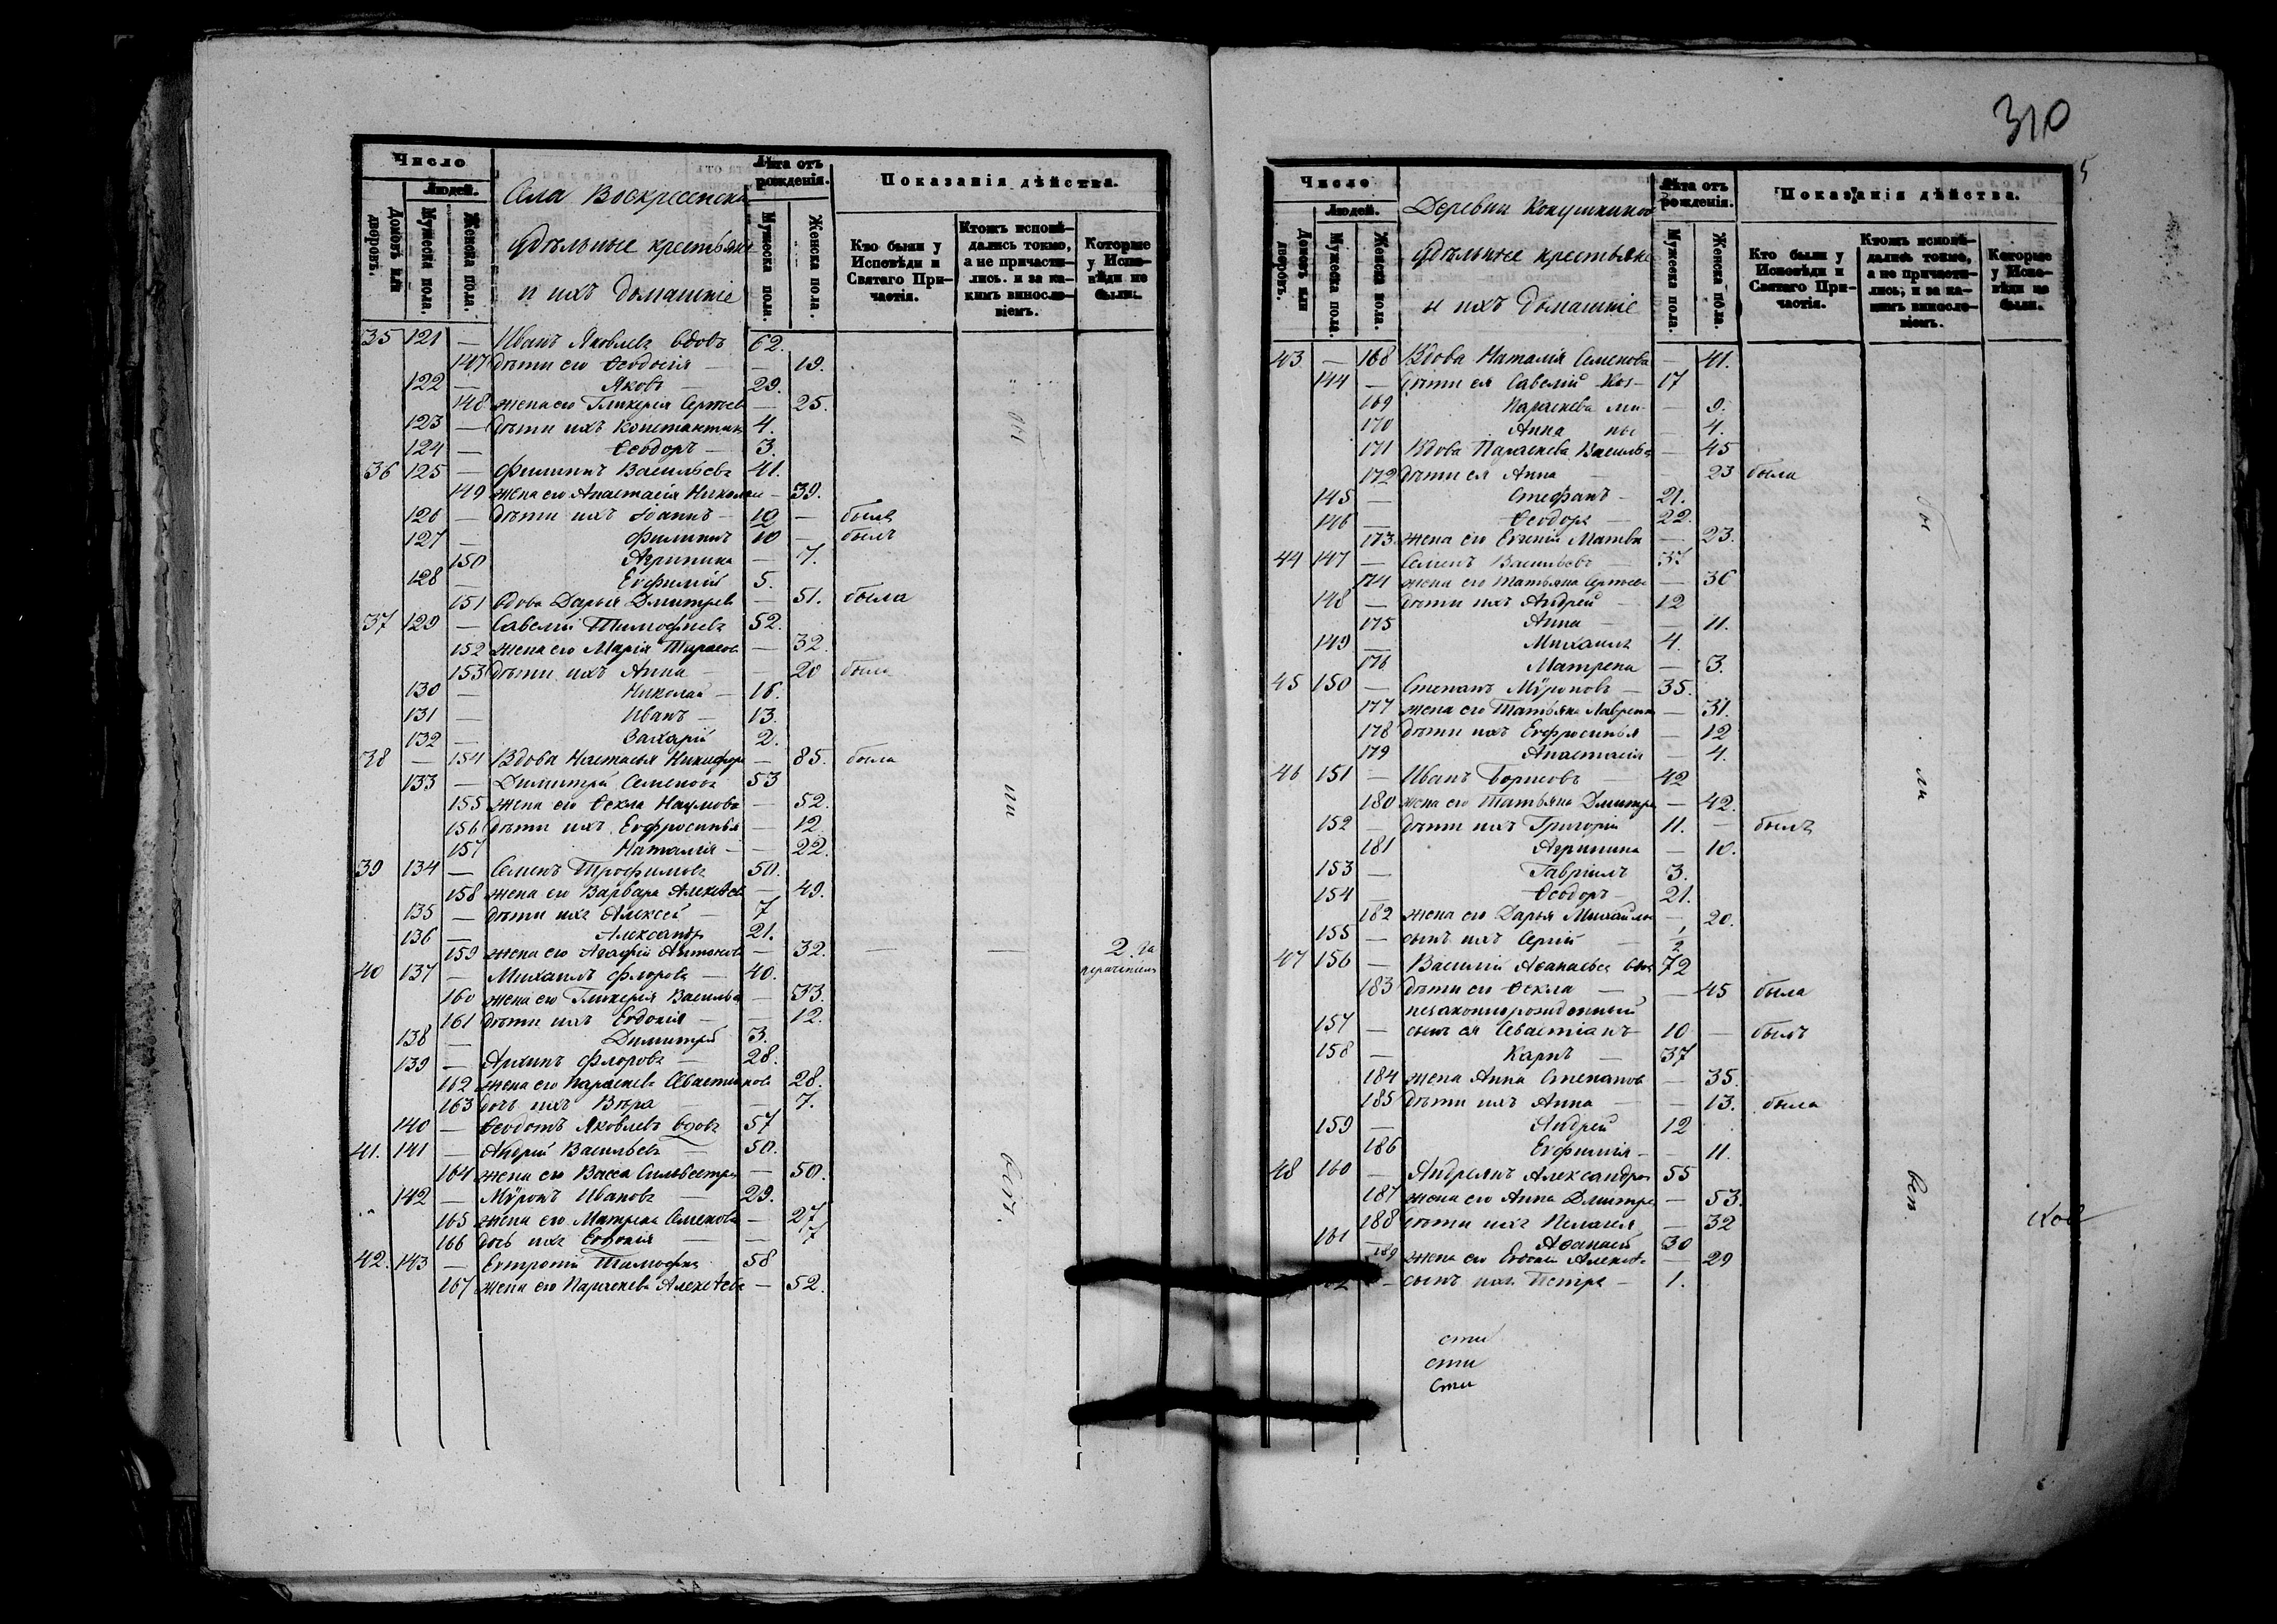 310
5
Число
Людей.
Домовъ или дворовъ.
Мужеска пола.
Женска пола.
Села Воскресенска
Удѣльные крестьяне
и ихъ домашніе
Лѣта отъ рожденія.
Мужеска пола.
Женска пола.
Показанія дѣйства.
Кто были у Исповѣди и Святаго Причастія.
Ктожъ исповѣдались токмо, а не причастились. и за какимъ винословіемъ.
Которые у Исповѣди не были.
35 121 — Иванъ Яковлевъ вдовъ 62.
147 дѣти его Ѳеодосія — — 19.
122 — Яковъ — 29.
148 жена его Гликерія Сергѣев — 25.
123 — дѣти ихъ Константинъ 4.
124 — Ѳеодоръ — 3.
36 125 — Филиппъ Васильевъ 41.
149 жена его Анастасія Николае — 39.
126 — дѣти ихъ Іоаннъ — 10 — былъ
127 — Филиппъ 10 — былъ
150 Агрипина — 7.
128 — Евфимій 5.
151 вдова Дарья Дмитрев — 51. была
37 129 — Савелій Тимофѣевъ 52.
152 жена его Марія Тарасов — 32.
153 дѣти ихъ Анна — — 20 была
130 — Николай — 16.
131 — Иванъ — 13.
132 — Захарій 2.
38 — 154 Вдова Настасья Никифор — 85. была
133 — Димитрій Семеновъ 53
155 жена его Ѳекла Наумова — 52.
156 дѣти ихъ Евфросинья — 12
157 Наталія — — 22.
39 134 — Семенъ Трофимовъ 50.
158 жена его Варвара Алексѣев — 49.
135 — дѣти ихъ Алексей — 7
136 — Александръ 21.
159 жена его Агафія Антонов — 32. — — 2.
40 137 — Михаилъ Флоровъ — 40.
160 жена его Гликерія Василье — 33.
161 дѣти ихъ Евдокія — — 12.
138 — Димитрій 3.
139 — Архипъ Флоровъ — 28.
162 жена его Параскева Севастьянова 28.
163 дочь ихъ Вѣра — — 7.
140 — Ѳеодотъ Яковлевъ вдовъ 57
41. 141 — Андрей Васильевъ — 50.
164 жена его Васса Сильвестр — 50.
142 — Мѵронъ Ивановъ — 29.
165 жена его Матрена Семенова — 27
166 дочь ихъ Евдокія — — 7
42. 143 — Евтропій Тимофѣе 58
167 жена его Параскева Алексѣева — 52.
Число
Людей.
Домовъ или дворовъ.
Мужеска пола.
Женска пола.
Деревни Кокушкиной
Удѣльные крестьяне
и ихъ домашніе
Лѣта отъ рожденія.
Мужеска пола.
Женска пола.
Показанія дѣйства.
Кто были у Исповѣди и Святаго Причастія.
Ктожъ исповѣдались токмо, а не причастились; и за какимъ винословіемъ.
Которые у Исповѣди не были.
43 — 168 Вдова Наталія Семенова — 41.
144 — дѣти ея Савелій Коз— 17
169 Параскева ми— — 9.
170 Анна ны — 4.
171 Вдова Параскева Василье — 45
172 дѣти ея Анна — — 23 была
145 — Стефанъ — 21.
146 — Ѳеодоръ — 22.
173 жена его Евгенія Матвѣ — 23.
44 147 — Семенъ Васильевъ — 37
174 жена его Татьяна Сергѣева — 36
148 — дѣти ихъ Андрей — 12
175 Анна — — 11.
149 — Михаилъ 4.
176 Матрена — 3.
45 150 — Степанъ Мѵроновъ — 35.
177 жена его Татьяна Лаврент — 31.
178 дѣти ихъ Евфросинья — 12
179 Анастасія — 4.
46 151 — Иванъ Борисовъ — 42
180 жена его Татьяна Дмитре — 42.
152 — дѣти ихъ Григорій 11. — былъ
181 Агрипина — 10.
153 — Гавріилъ 3.
154 — Ѳеодоръ — 21.
182 жена его Дарья Михайлов — 20.
155 — сынъ ихъ Сергій — 1/2
47 156 — Василій Аѳанасьевъ вдов 72
183 дѣти его Ѳекла — — 45 была
незаконнорожденный
157 — сынъ ея Севастіанъ 10 — былъ
158 — Карпъ — 37
184 жена Анна Степанов — 35.
185 дѣти ихъ Анна — — 13. была
159 — Андрей 12
186 Евфимія — — 11.
48 160 — Андреянъ Александров 55
187 жена его Анна Дмитре — 53.
188 дѣти ихъ Пелагея — 32
161 — Аѳанасій 30
189 жена его Евдокія Алексѣе — 29
— сынъ ихъ Петръ — 1.
сти
сти
сти